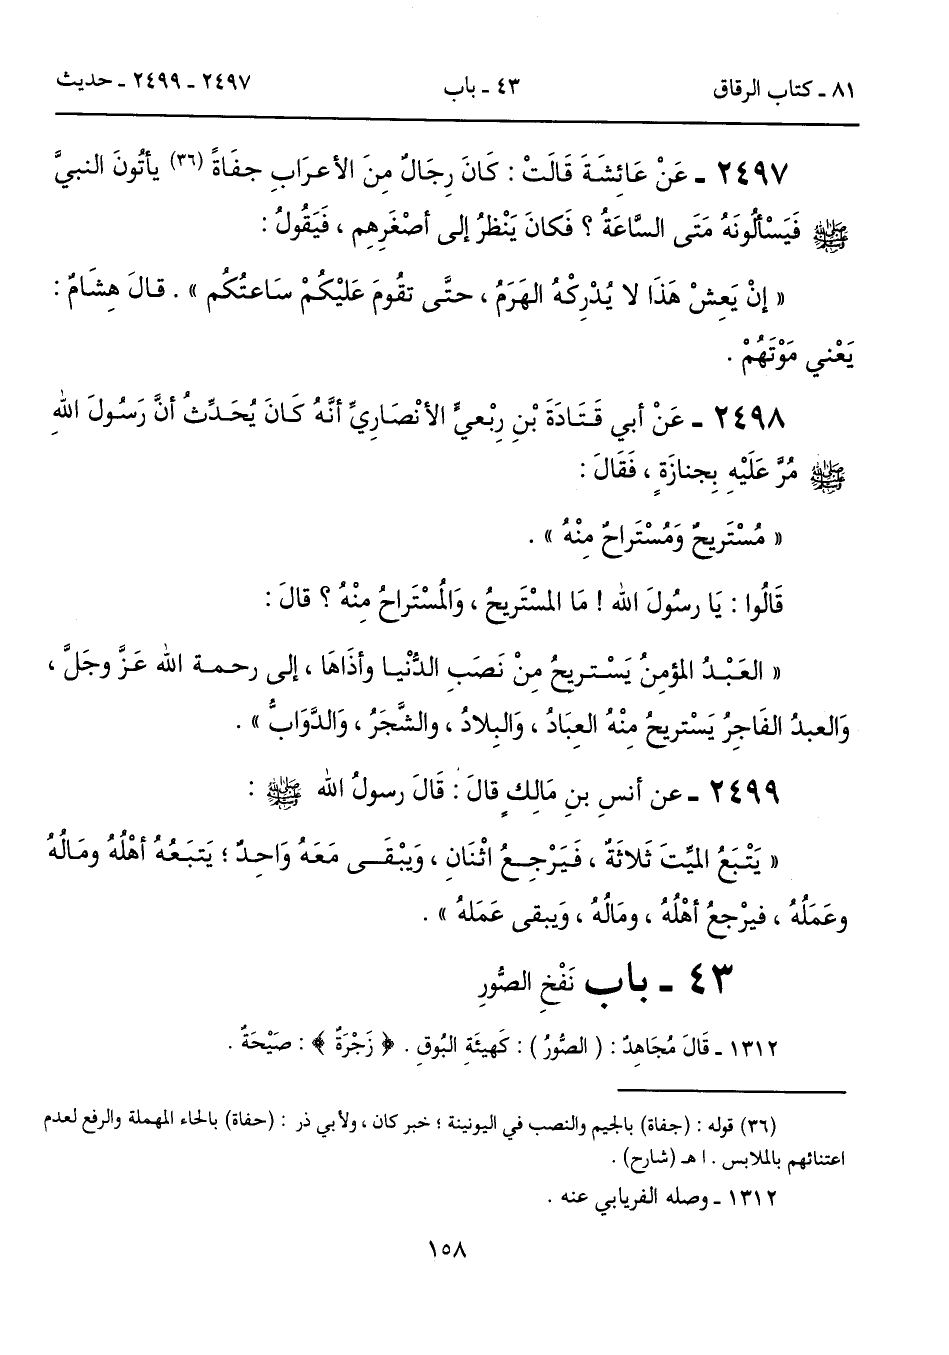 ٨١ ـ كتاب الرقاق ٤٣ ـ باب ٢٤٩٧ ـ ٢٤٩٩ ـ حديث
٢٤٩٧ ـ عَنْ عَائِشَةَ قَالَتْ : كَانَ رِجَالٌ مِنَ الأعرَابِ جفَاةً (٣٦) يأتُونَ النبيَّ
ﷺ فَيَسْألُونَهُ مَتَى السَّاعَةُ ؟ فَكانَ يَنْظرُ إلى أصْغَرِهِم ، فَيَقُولُ :
« إنْ يَعِشْ هَذَا لا يُدْرِكْهُ الهَرَمُ ، حتَّى تقُومَ عَلَيْكُمْ سَاعتُكُم » . قـالَ هِشَامٌ :
يَعْني مَوْتَهُمْ .
٢٤٩٨ ـ عَنْ أبي قَـتَـادَةَ بْنِ رِبْعيٍّ الأنْصَارِيِّ أنَّهُ كَانَ يُحَدِّثُ أنَّ رَسُولَ اللهِ
ﷺ مُرَّ عَلَيْهِ بِجنازَةٍ ، فَقَالَ :
« مُسْتَرِيحٌ وَمُسْتَراحٌ مِنْهُ » .
قَالُوا : يَا رسُولَ الله ! مَا المسْتَريحُ ، وَالمُسْتَراحُ مِنْهُ ؟ قالَ :
« العَبْـدُ المؤمنُ يَسْـتـريحُ مِنْ نَصَبِ الدُّنْيـا وأذَاهَا ، إلى رحـمـة الله عَـزَّ وجَلَّ ،
وَالعبدُ الفَاجِرُ يَسْتريحُ مِنْهُ العِبَادُ ، وَالبِلادُ ، والشَّجَرُ ، وَالدَّوَابُّ » .
٢٤٩٩ ـ عن أنس بنِ مَالِكٍ قالَ : قَالَ رسولُ الله ﷺ :
« يَتْبَعُ الميِّتَ ثَلاثَةٌ ، فَـيَرْجِـعُ اثْنَانِ ، وَيبْقَــى مَعَهُ وَاحِدٌ ؛ يَتبَعُهُ أهْلُهُ ومَـالُهُ
وعَمَلُهُ ، فيرْجعُ أهْلُهُ ، ومَالُهُ ، وَيبقى عَمَلهُ » .
٤٣ ـ باب نَفْخِ الصُّورِ
١٣١٢ ـ قَالَ مُجَاهِدٌ : ( الصُّورُ ) : كَهيئَةِ البُوقِ . ﴿ زَجْرَةٌ ﴾ : صَيْحَةٌ .
(٣٦) قوله : (جفاة) بالجيم والنصب في اليونينة ؛ خبر كان ، ولأبي ذر : (حفاة) بالحاء المهملة والرفع لعدم
اعتنائهم بالملابس . ا هـ (شارح) .
١٣١٢ ـ وصله الفريابي عنه .
١٥٨